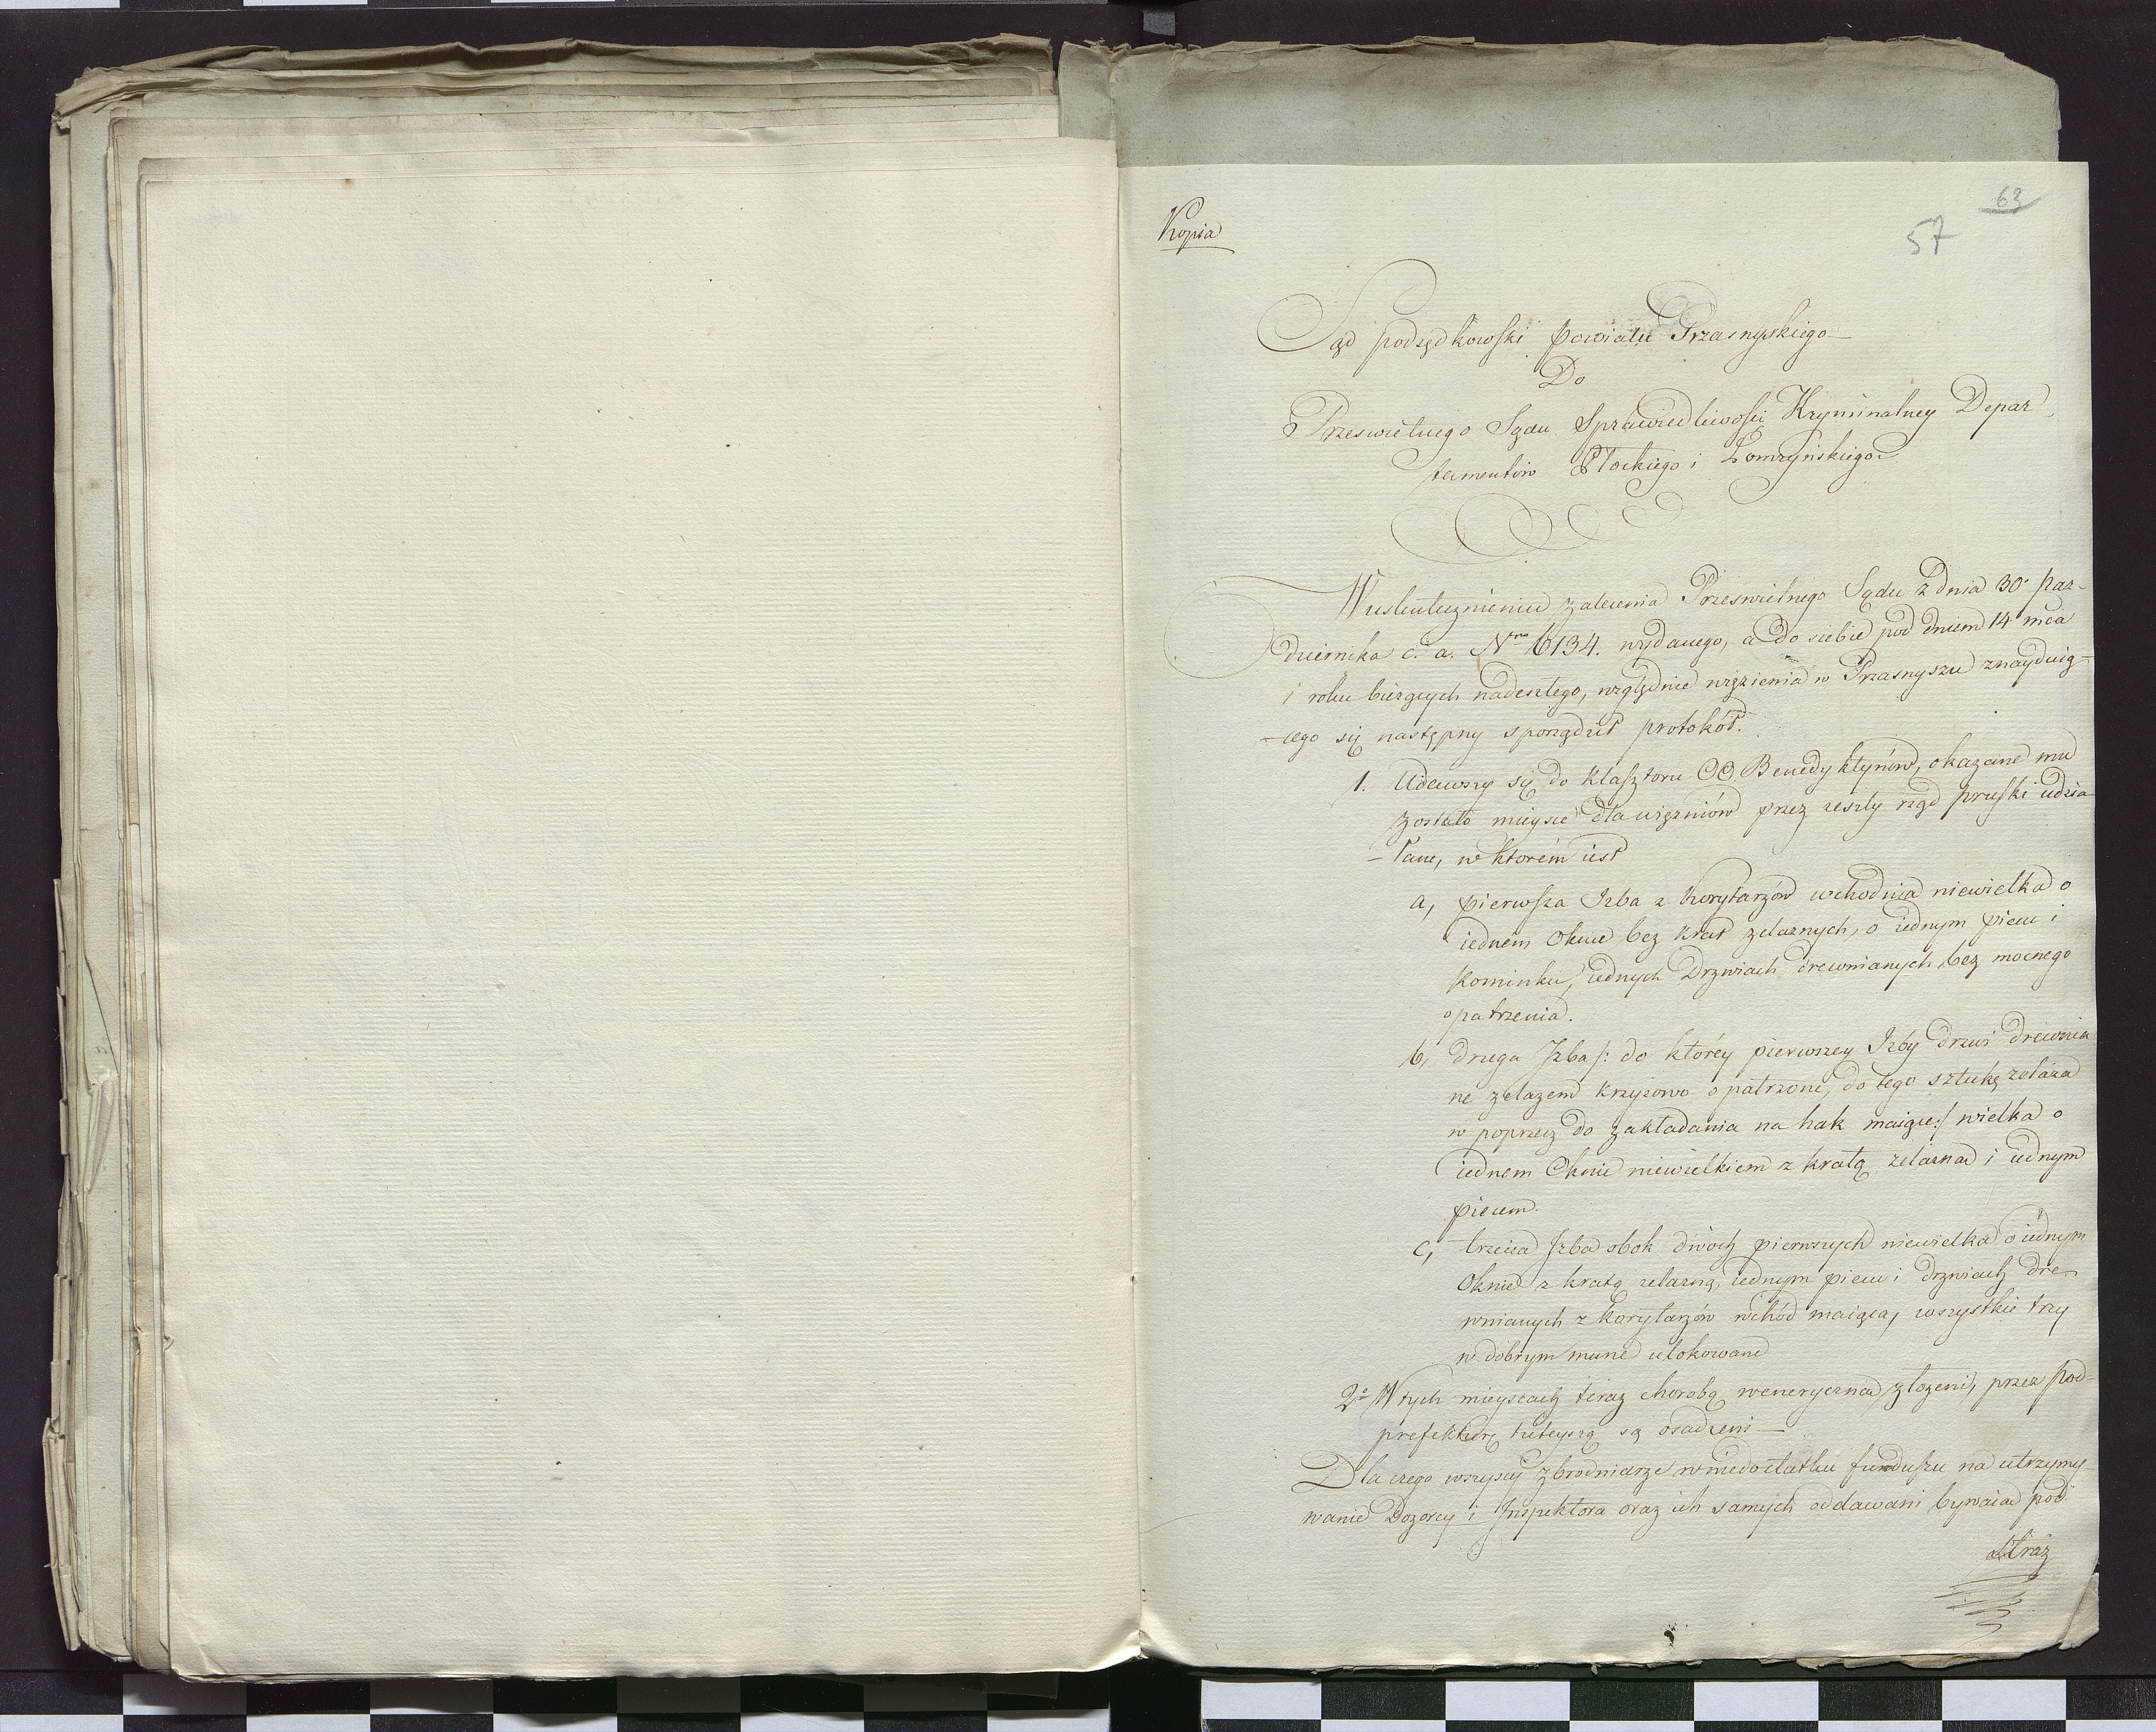 63
57
Kopia
Sąd podsędkowski powiatu Przasnyskiego
Do
Prześwietnego Sądu Sprawiedliwości Kryminalney Depar-
tamentów Płockiego i Łomżyńskiego
W uskutecznieniu zalecenia Prześwietnego Sądu z dnia 30. Paz-
dziernika c. a. Nro 6134. wydanego, a do siebie pod dniem 14 mca
i roku bieżących nadeszłego, względnie więzienia w Przasnyszu znayduią-
-cego się następny sporządził protokół.
1. Udawszy się do Klasztoru OO. Benedyktynów, okazane mu
zostało mieysce dla więzniów przez zeszły rząd pruski udzia-
-łane, w ktorém iest
a, pierwsza Izba z korytarzów wchodnia niewielka o
iednem Oknie bez krat zelaznych, o iednym piecu i
kominku, iednych Drzwiach drewnianych bez mocnego
opatrzenia.
b, druga Izba /: do któréy pierwszey Izby drzwi drewnia
ne zelazem krzyzowo opatrzone, do tego sztukę zelaza
w poprzecz do zakładania na hak maiące :/ wielka o
iednem Oknie niewielkiem z kratą zelazna i iednym
piecem.
c, trzecia Izba obok dwóch pierwszych niewielka o iednym
Oknie z kratą zelazną, iednym piecu i drzwiach dre-
wnianych z korytarzów wchód maiąca, wszystkie trzy
w dobrym murze ulokowane
2o W tych mieyscach teraz chorobą weneryczna złozeni, przez Pod-
prefekturę tuteyszą są osadzeni —
Dla czego wszyscy zbrodniarze w niedostatku funduszu na utrzymy
wanie Dozorcy i Inspektora oraz ich samych oddawani bywaia pod
straz